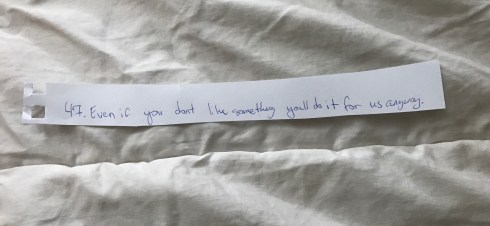 47. Even if you dont like something you'll do it for us anyway.